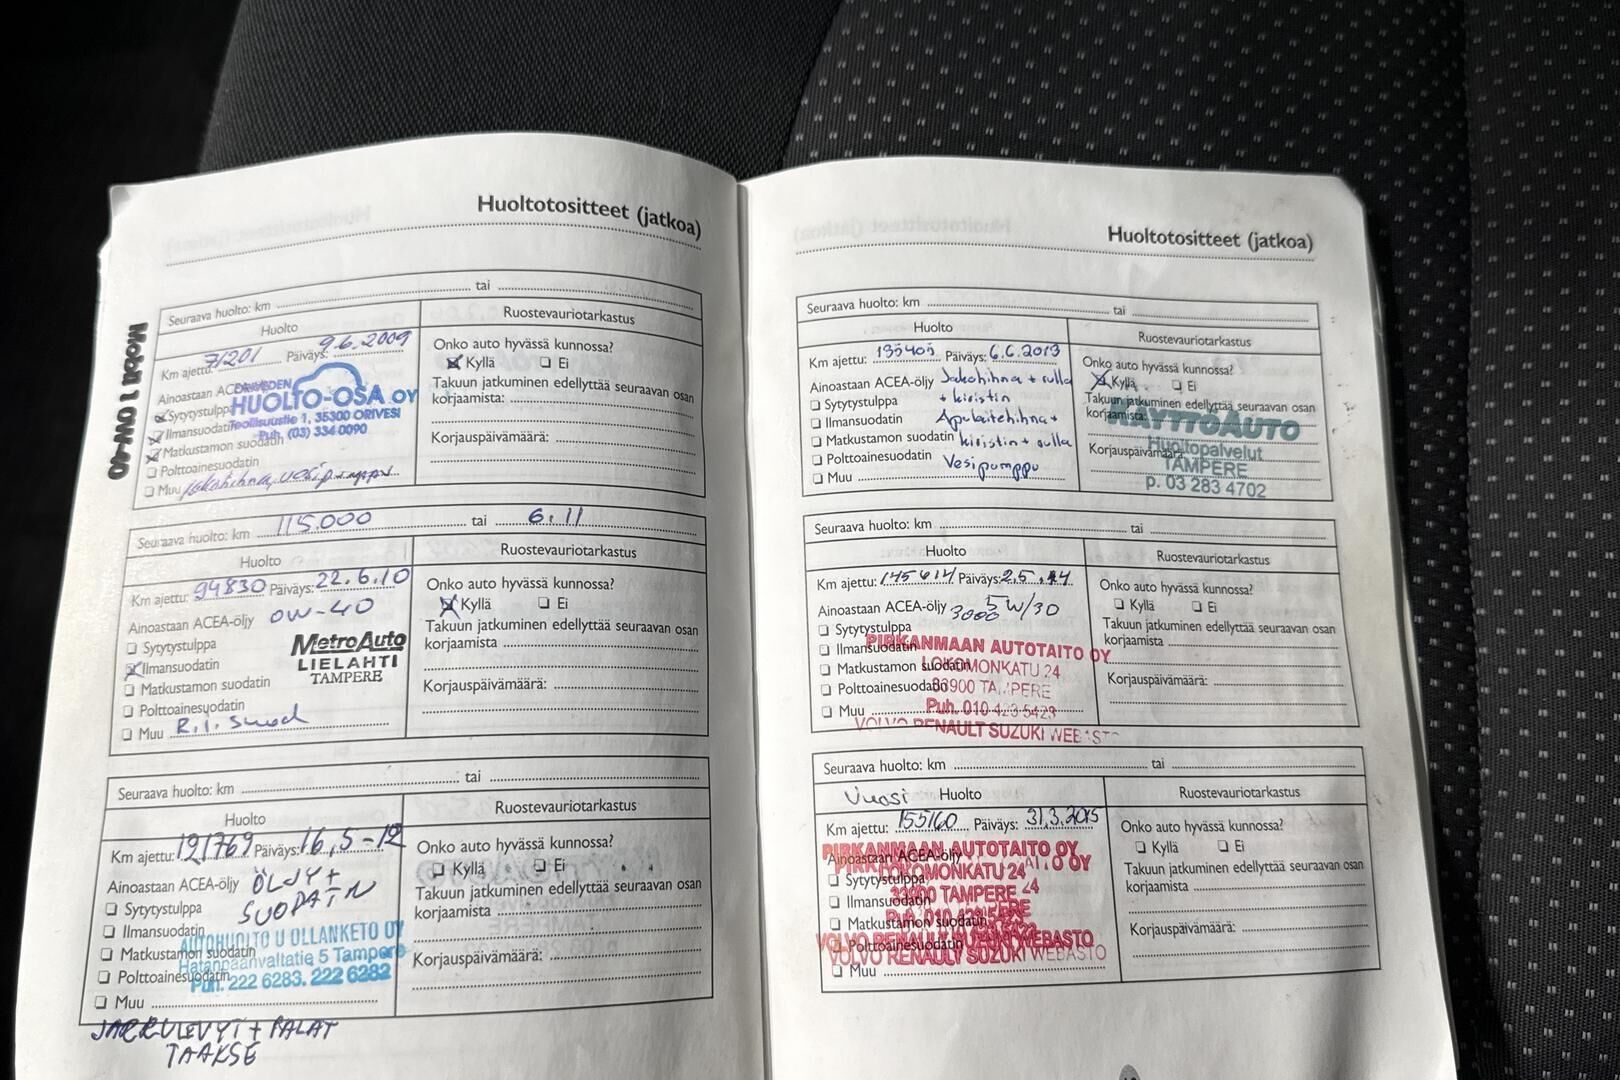 Huoltotositteet (jatkoa)
Mobil 1 0W-40
Seuraava huolto: km tai
Huolto
Ruostevauriotarkastus
Km ajettu: 71201 Päiväys: 9.6.2009
Onko auto hyvässä kunnossa?
Kyllä Ei
Ainoastaan
HUOLTO-OSA OY
Teollisuustie 1, 35300 ORIVESI
Puh. (03) 334 0090
Sytytystulppa
Ilmansuodatin
Matkustamon suodatin
Polttoainesuodatin
Muu Jakohihna, vesip
Takuun jatkuminen edellyttää seuraavan osan
korjaamista:
Korjauspäivämäärä:
Seuraava huolto: km 115.000 tai 6.11
Huolto
Ruostevauriotarkastus
Km ajettu: 94830 Päiväys: 22.6.10
Onko auto hyvässä kunnossa?
Kyllä Ei
Ainoastaan ACEA-öljy 0W-40
Sytytystulppa
Ilmansuodatin
Matkustamon suodatin
Polttoainesuodatin
Muu R.i. Suod
MetroAuto
LIELAHTI
TAMPERE
Takuun jatkuminen edellyttää seuraavan osan
korjaamista
Korjauspäivämäärä:
Seuraava huolto: km tai
Huolto
Ruostevauriotarkastus
Km ajettu: 121769 Päiväys: 16,5-12
Onko auto hyvässä kunnossa?
Kyllä Ei
Ainoastaan ACEA-öljy ÖLJY +
SUODATIN
Sytytystulppa
Ilmansuodatin
Matkustamon suodatin
Polttoainesuodatin
Muu
AUTOHUOLTO U OLLANKETO OY
Hatanpäänvaltatie 5 Tampere
Puh. 222 6283. 222 6282
Takuun jatkuminen edellyttää seuraavan osan
korjaamista
Korjauspäivämäärä:
JARRULEVYT + PALAT
TAAKSE
Huoltotositteet (jatkoa)
Seuraava huolto: km tai
Huolto
Ruostevauriotarkastus
Km ajettu: 135405 Päiväys: 6.6.2013
Onko auto hyvässä kunnossa?
Kyllä Ei
Ainoastaan ACEA-öljy Jakohihna + rulla
Sytytystulppa + kiristin
Ilmansuodatin Apulaitehihna +
Matkustamon suodatin kiristin + rulla
Polttoainesuodatin Vesipumppu
Muu
Takuun jatkuminen edellyttää seuraavan osan
korjaamista
KÄYTTÖAUTO
Huoltopalvelut
TAMPERE
p. 03 283 4702
Korjauspäivämäärä:
Seuraava huolto: km tai
Huolto
Ruostevauriotarkastus
Km ajettu: 145614 Päiväys: 2.5.14
Onko auto hyvässä kunnossa?
Kyllä Ei
Ainoastaan ACEA-öljy 3000 5W/30
Sytytystulppa
Ilmansuodatin
Matkustamon suodatin
Polttoainesuodatin
Muu
PIRKANMAAN AUTOTAITO OY
LOKOMONKATU 24
33900 TAMPERE
Puh. 010 423 5423
VOLVO RENAULT SUZUKI WEBASTO
Takuun jatkuminen edellyttää seuraavan osan
korjaamista
Korjauspäivämäärä:
Seuraava huolto: km tai
Vuosi Huolto
Ruostevauriotarkastus
Km ajettu: 155160 Päiväys: 31.3.2015
Onko auto hyvässä kunnossa?
Kyllä Ei
Ainoastaan ACEA-öljy
Sytytystulppa
Ilmansuodatin
Matkustamon suodatin
Polttoainesuodatin
Muu
PIRKANMAAN AUTOTAITO OY
LOKOMONKATU 24
33900 TAMPERE
Puh. 010 423 5423
VOLVO RENAULT SUZUKI WEBASTO
Takuun jatkuminen edellyttää seuraavan osan
korjaamista
Korjauspäivämäärä: